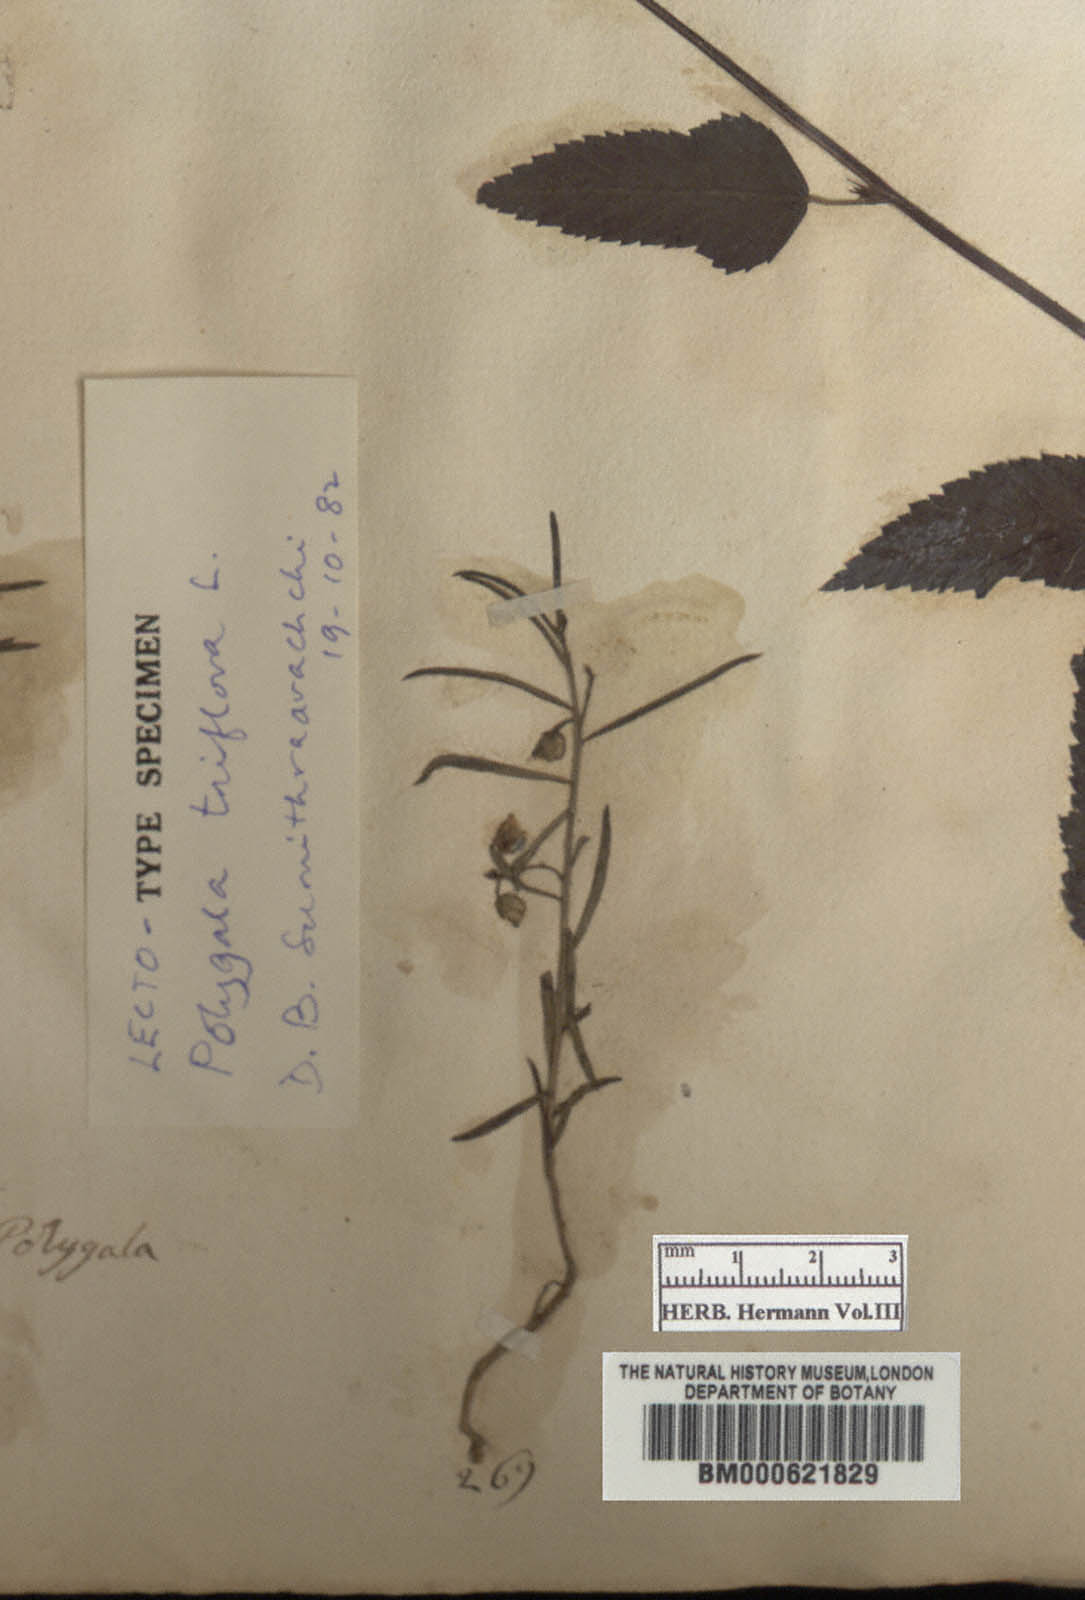 LECTO - TYPE SPECIMEN
Polygala triflora L.
D. B. Sumithraarachchi
19-10-82
Polygala
269
mm 1 2 3
HERB. Hermann Vol.III
THE NATURAL HISTORY MUSEUM,LONDON
DEPARTMENT OF BOTANY
BM000621829